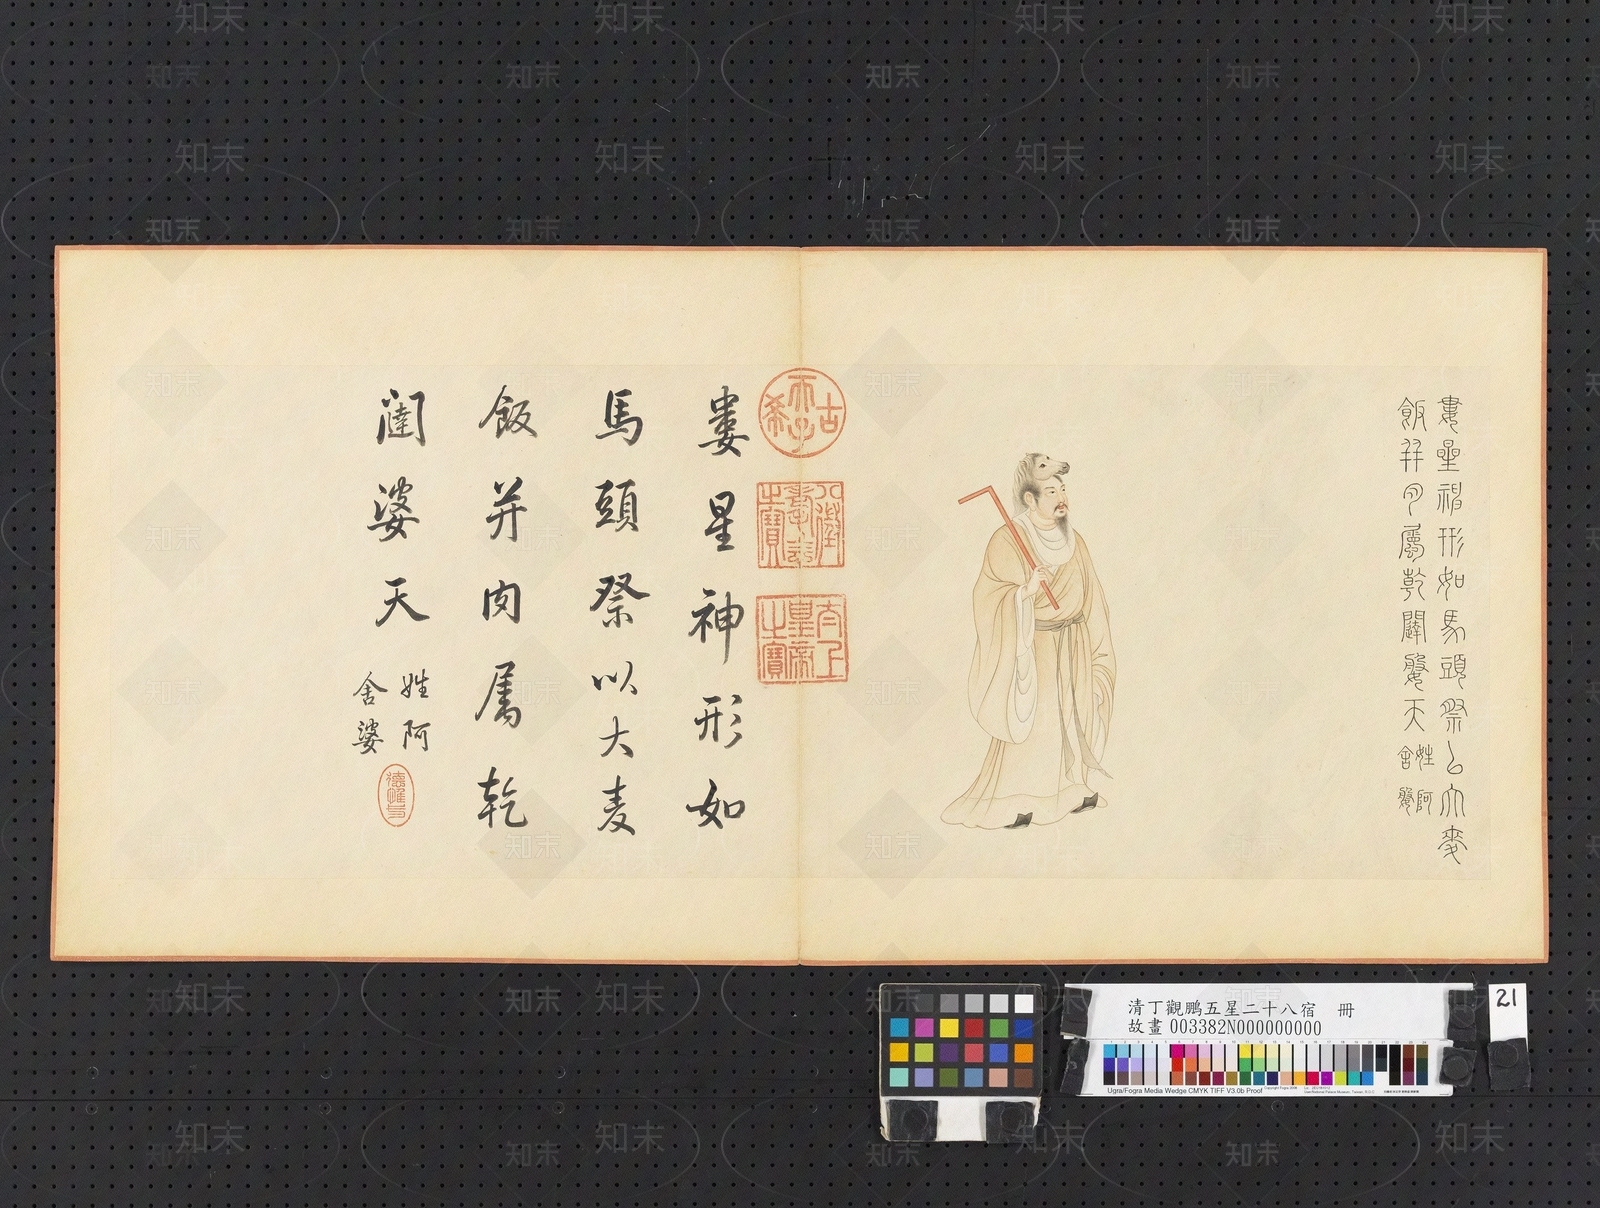 婁星神形如馬頭祭以大麥
飯并肉屬乾闥婆天
姓阿
舍婆
古希天子
八徵耄念之寶
太上皇帝之寶
婁星神形如
馬頭祭以大麦
飯并肉屬乾
闥婆天
姓阿
舍婆
德惟馨
清丁觀鵬五星二十八宿 冊
故畫 003382N000000000
21
Ugra/Fogra Media Wedge CMYK TIFF V3.0b Proof
知末